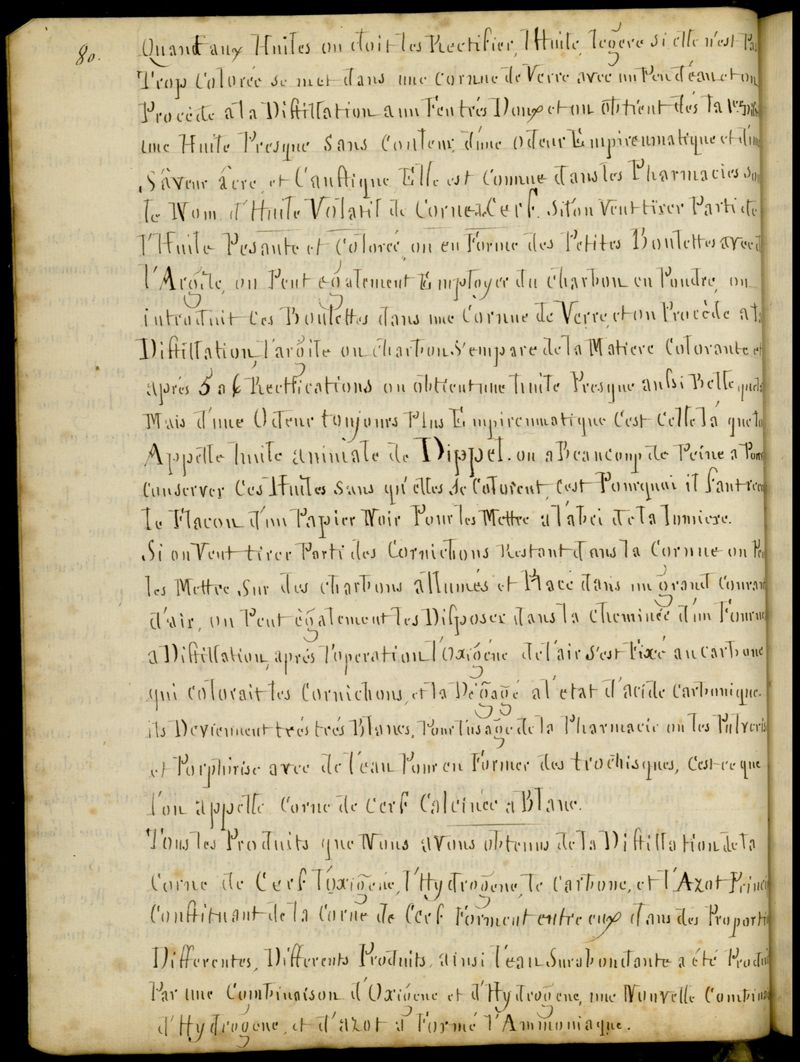 80.
Quant aux Huiles on doit les Rectifier, l'Huile legere si elle n'est Pas
Trop Colorée se met dans une Cornue de Verre avec un Peu d'eau et on
Procède a la Distillation a un Feu trés Doux et on obtient dés la
une Huile Presque Sans Couleur, d'une odeur Empireumatique et d'un
Sâveur âcre, et Caustique Elle est Connue dans les Pharmacies Sou
le Nom d'Huile Volatil de Corne de Cerf. Si l'on Veut tirer Parti de
l'Huile Pesante et Colorée on en Forme des Petites Boulettes avec d
l'Argile, on Peut également Employer du Charbon en Poudre, on
introduit Ces Boulettes dans une Cornue de Verre, et on Procède a la
Distillation l'argile ou charbon S'empare de la Matiere Colorante et
aprés 5 a 6 Rectifications on obtient une huile Presque aussi Belle,
Mais d'une Odeur toujours Plus Empireumatique C'est Celle là que l'o
Appelle huile animale de Dippel. on a Beaucoup de Peine a Pou
Conserver Ces Huiles Sans qu'elles se Colorent, C'est Pourquoi il faut
le Flacon d'un Papier Noir Pour les Mettre a l'abri de la lumiere.
Si on Veut tirer Parti des Cornichons Restant dans la Cornue on Peu
les Mettre Sur des charbons allumés et Placé dans un grand Couran
d'air, on Peut également les Disposer dans la Cheminée d'un Fourne
a Distillation, aprés l'operation l'Oxigéne de l'air s'est Fixé au Carbone
qui Colorait les Cornichons, et la Dégagé a l'etat d'acide Carbonique.
ils Deviennent trés trés Blancs, Pour l'usage de la Pharmacie on les Pulveris
et Porphirise avec de l'eau Pour en Former des trochisques, C'est ce que
l'on appelle Corne de Cerf Calcinée a Blanc.
Tous les Produits que Nous avons obtenus de la Distillation de la
Corne de Cerf l'oxigéne, l'Hydrogene, le Carbone, et l'Azot Princi
Constituant de la Corne de Cerf Forment entre eux dans des Proporti
Differentes, Differents Produits, ainsi l'eau Surabondante a été Produi
Par une Combinaison d'Oxigéne et d'Hydrogene, une Nouvelle Combinai
d'Hydrogene, et d'azot a Formé l'Ammoniaque.